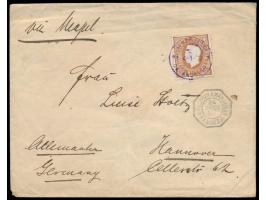 via Neapel.
Frau
Luise Holtz
Allemanha
Germany
Hannover
Cellerstr 62